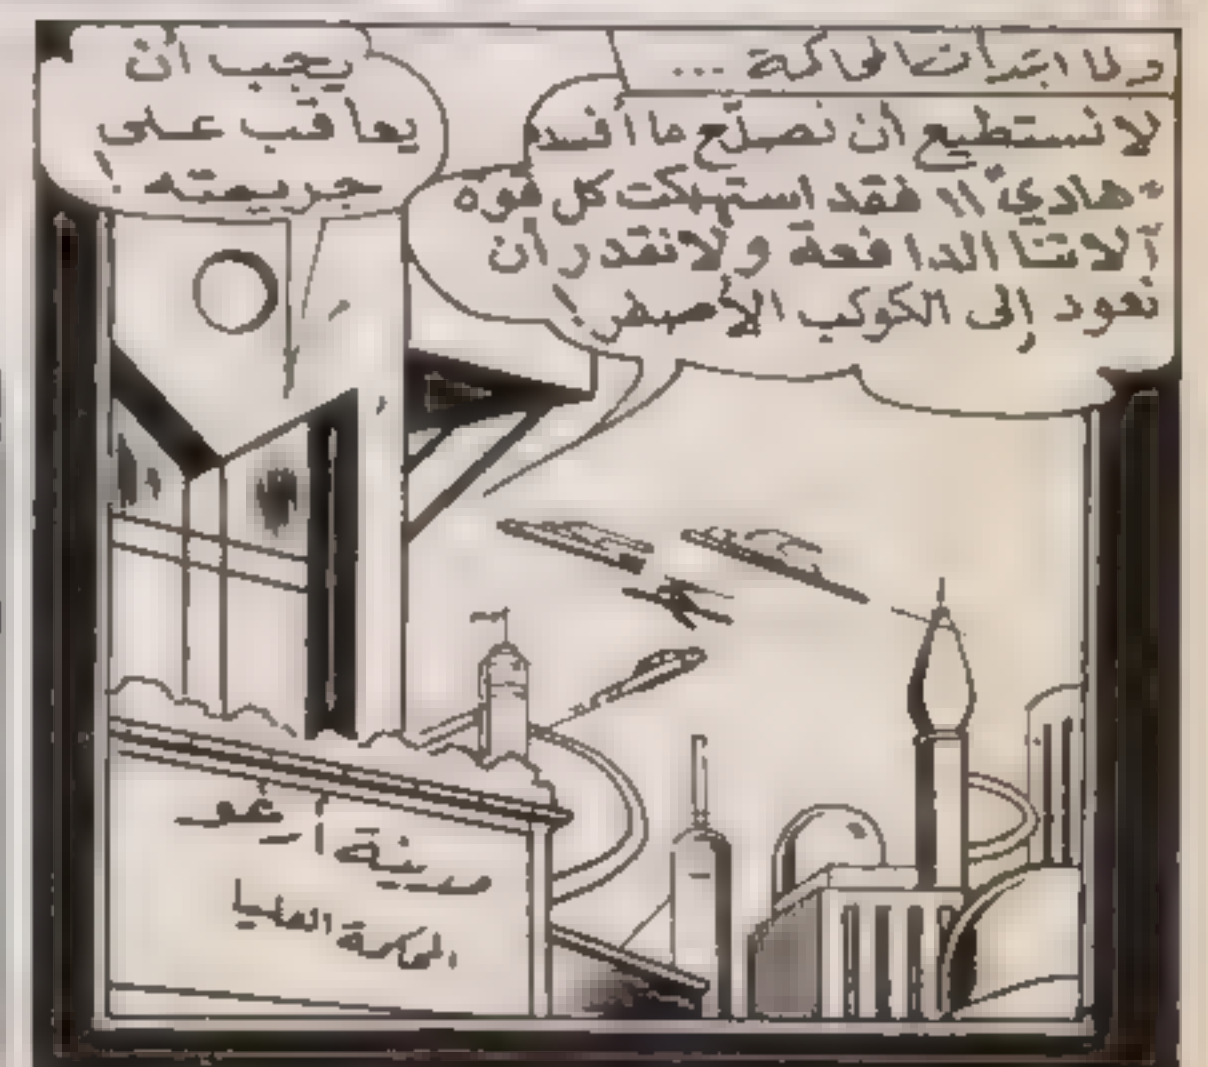 ولما ابتدأت المحاكمة ...
لا نستطيع أن نصلّح ما أفسده
"هاديّ" !! فقد استهلكت كل قوه
آلاتنا الدافعة ولا نقدر أن
نعود إلى الكوكب الأصفر !
يجب أن
يعاقب على
جريمته !
مدينة أرغو
المحكمة العليا